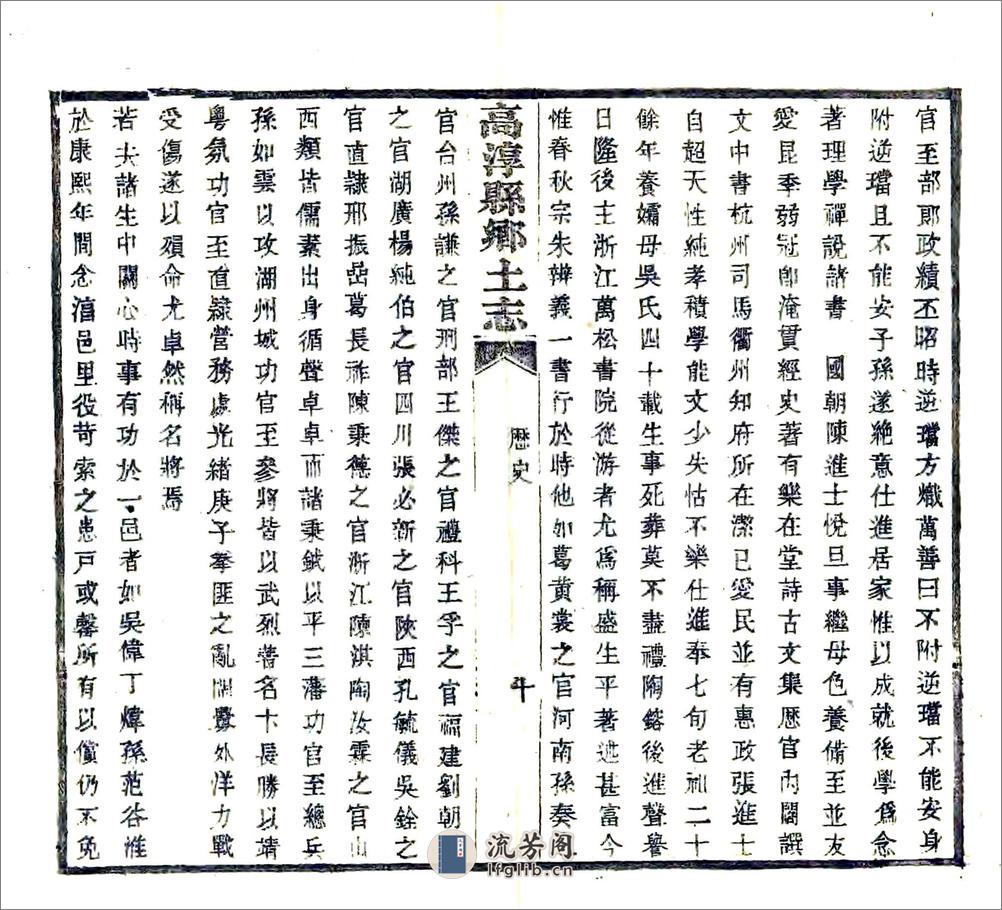 官至部郎政績丕昭時逆璫方熾萬善曰不附逆璫不能安身
附逆璫且不能安子孫遂絶意仕進居家惟以成就後學爲念
著理學禪說諸書　國朝陳進士悅旦事繼母色養備至並友
愛昆季弱冠卽淹貫經史著有樂在堂詩古文集歷官內閣譔
文中書杭州司馬衢州知府所在潔已愛民並有惠政張進士
自超天性純孝積學能文少失怙不樂仕進奉七旬老祖二十
餘年養孀母吳氏四十載生事死葬莫不盡禮陶鎔後進聲譽
日隆後主浙江萬松書院從游者尤爲稱盛生平著述甚富今
惟春秋宗朱辨義一書行於時他如葛黃裳之官河南孫奏之
高淳縣鄉土志
歷史
十
官台州孫謙之官刑部王傑之官禮科王孚之官福建劉朝
之官湖廣楊純伯之官四川張必新之官陝西孔毓儀吳銓之
官直隸邢振岳葛長祚陳秉德之官浙江陳淇陶汝霖之官山
西類皆儒素出身循聲卓卓而諸秉鉞以平三藩功官至總兵
孫如雲以攻湖州城功官至參將皆以武烈著名卞長勝以靖
粵氛功官至直隸營務處光緒庚子拳匪之亂開釁外洋力戰
受傷遂以殞命尤卓然稱名將焉
若夫諸生中關心時事有功於一邑者如吳偉丁煒孫范谷惟
於康熙年間念淳邑里役苛索之患戶或罄所有以償仍不免